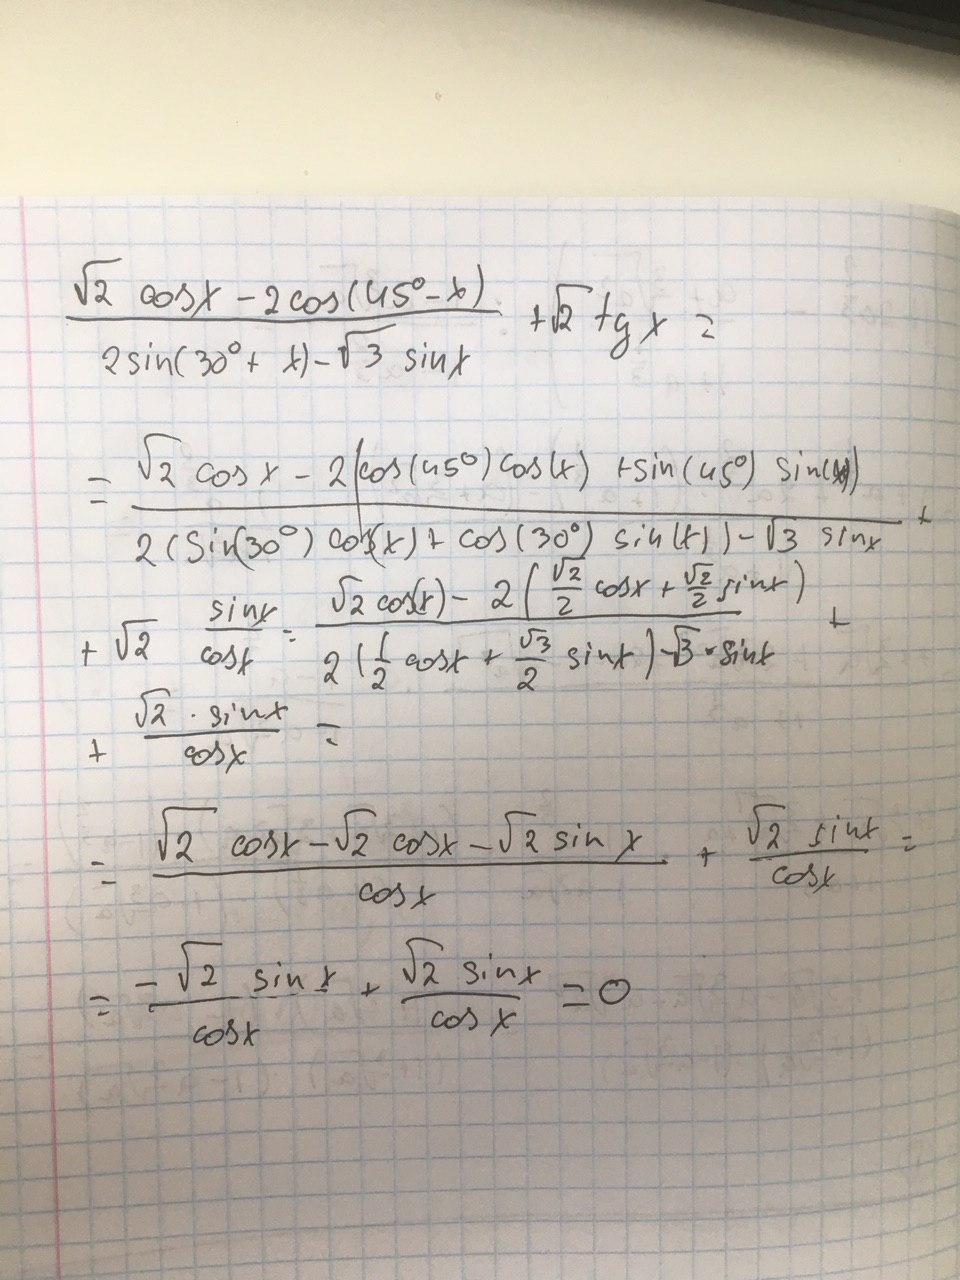 √2 cosx − 2cos(45° − x) / 2sin(30° + x) − √3 sinx + √2 tg x =
= √2 cosx − 2(cos(45°)cos(x) + sin(45°) sin(x)) / 2(sin(30°) cos(x) + cos(30°) sin(x)) − √3 sinx +
+ √2 sinx / cosx = √2 cos(x) − 2(√2/2 cosx + √2/2 sinx) / 2(1/2 cosx + √3/2 sinx) − √3 · sinx +
+ √2 · sinx / cosx =
= √2 cosx − √2 cosx − √2 sin x / cosx + √2 sinx / cosx =
= −√2 sinx / cosx + √2 sinx / cosx = 0